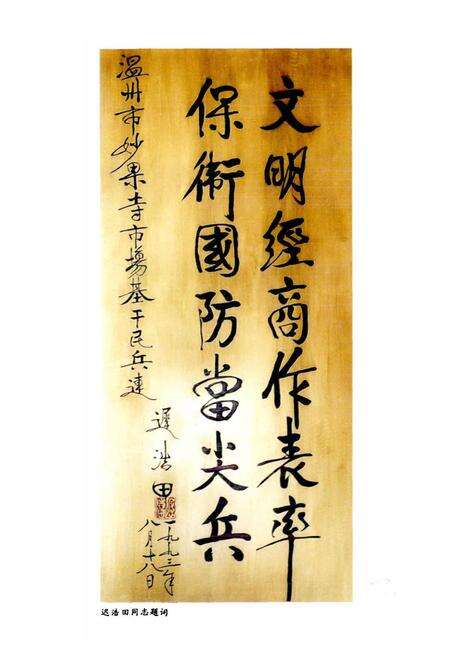 文明經商作表率
保衛國防當尖兵
温州市妙果寺市場基干民兵連
遲浩田
一九九三年
八月十八日
迟浩田同志题词